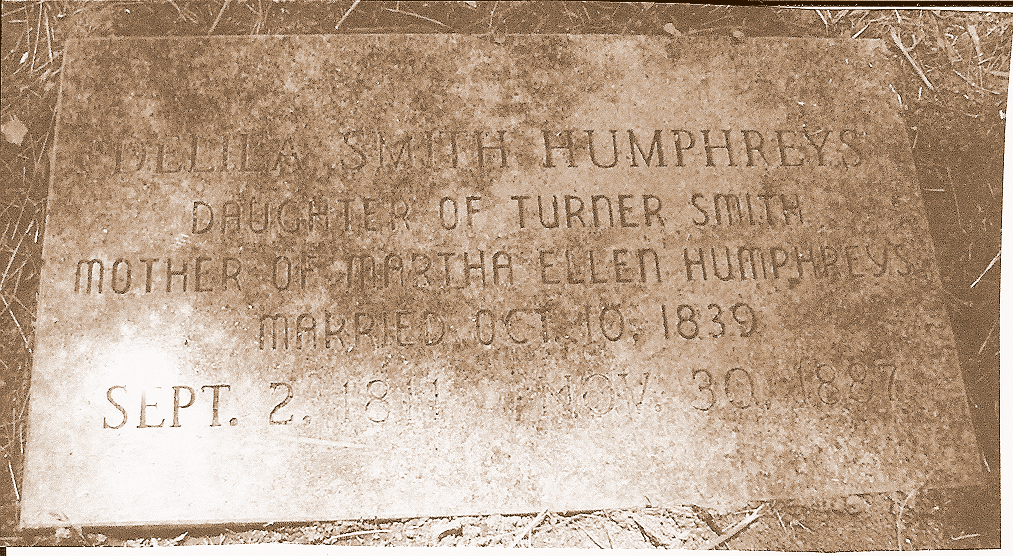 DELILA SMITH HUMPHREYS
DAUGHTER OF TURNER SMITH
MOTHER OF MARTHA ELLEN HUMPHREYS
MARRIED OCT. 10, 1839
SEPT. 2, 1811 NOV. 30, 1887